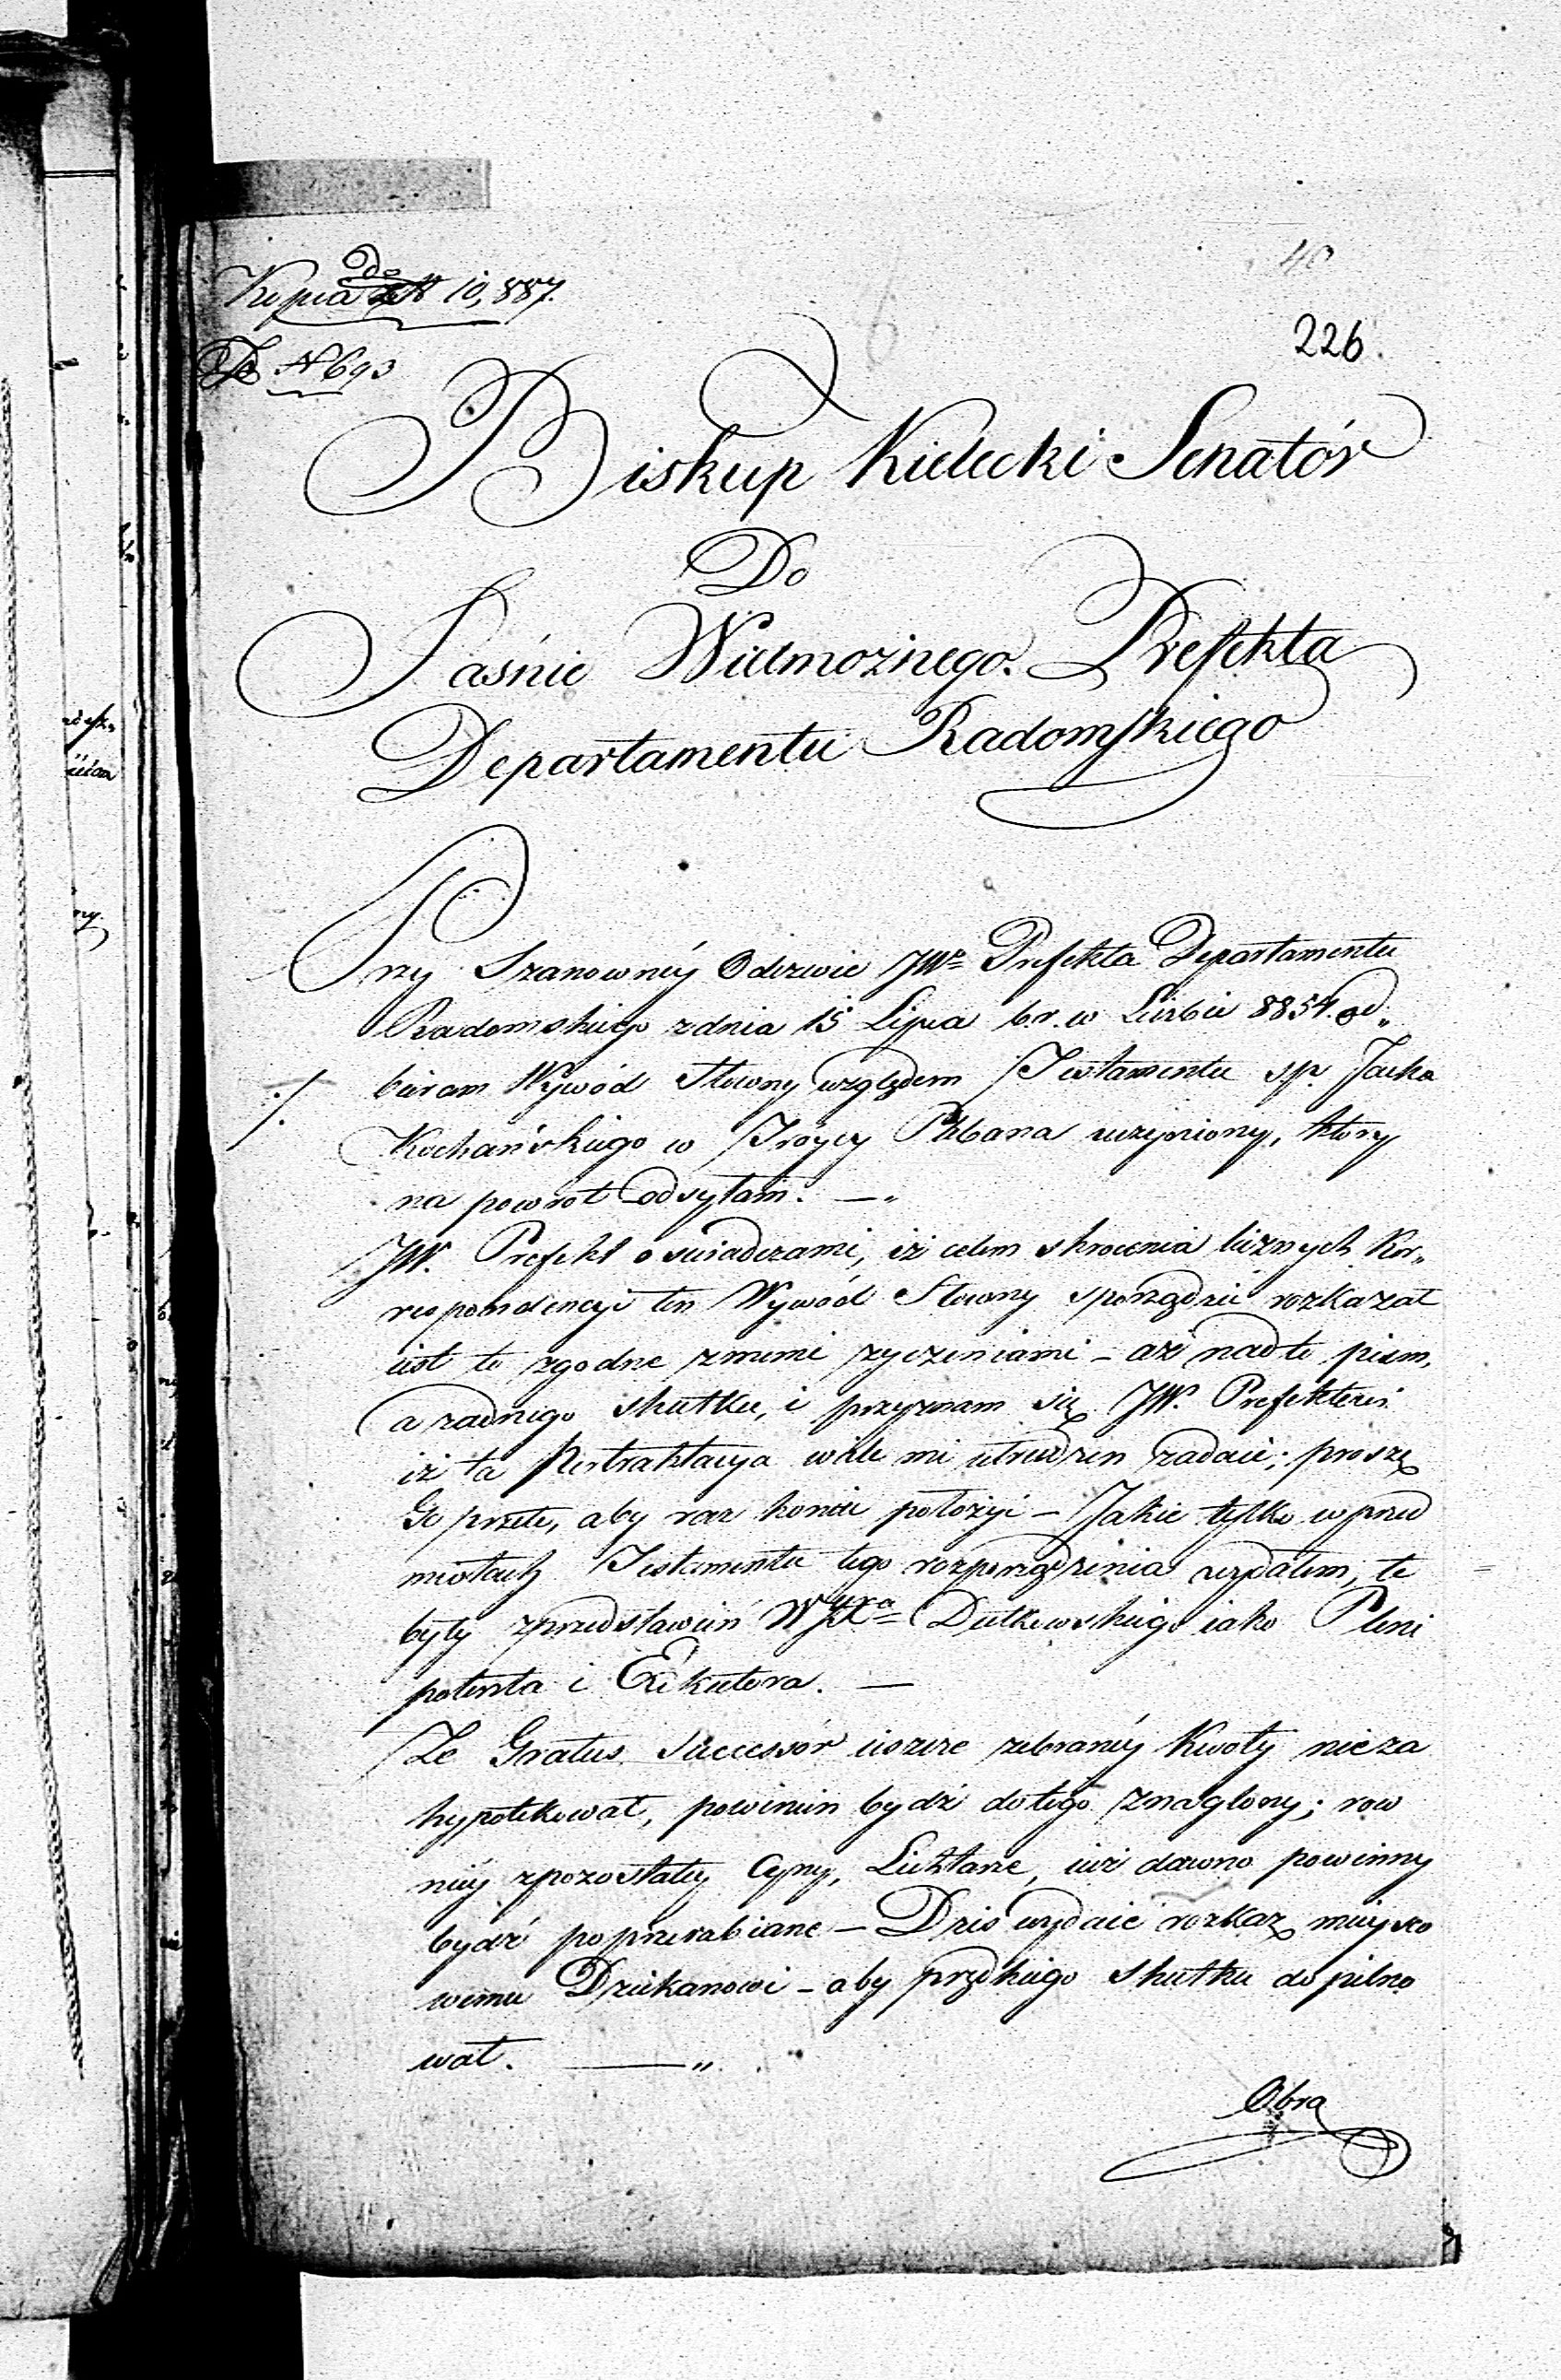 40
Kopia do N 10,887.
226.
N 693
Biskup Kielecki Senatór
Do
Jaśnie Wielmożnego Prefekta
Departamentu Radomskiego
Przy Szanownéy Odezwie JWo Prefekta Departamentu
Radomskiego z dnia 15 Lipca b.r. w Liczbie 8854. od„
bieram Wywód Słowny względem Testamentu sp. Jacka
Kochańskiego w Tróycy Plebana uczyniony, ktory
na powrot odsyłam. —„
JW. Prefekt oswiadcza mi, iż celem skrocenia licznych Kor„
respondencyi ten Wywód Słowny sporządzić rozkazał
iest to zgodne z memi zyczeniami – aż nadto pism,
a zadnego skutku, i przyznam się JW. Prefektowi
iż ta Pertraktacya wiele mi utrudzen zadaie; proszę
Go przeto, aby raz koniec położyć – Jakie tylko w przed
miotach Testamentu tego rozporządzenia wydałem, te
były z przedstawień WJXa Dutkowskiego iako Pleni
potenta i Exekutora. —
Ze Gratus Successór ieszcze zebranéy Kwoty nieza
hypotekował, powinien bydź do tego znaglony; row
niéy z pozostałey Cyny, Lichtarze, iuż dawno powinny
bydź poprzerabiane – Dzis wydaię rozkaz mieysco
wemu Dziekanowi – aby prędkiego skutku dopilno
wał. —„
Obra